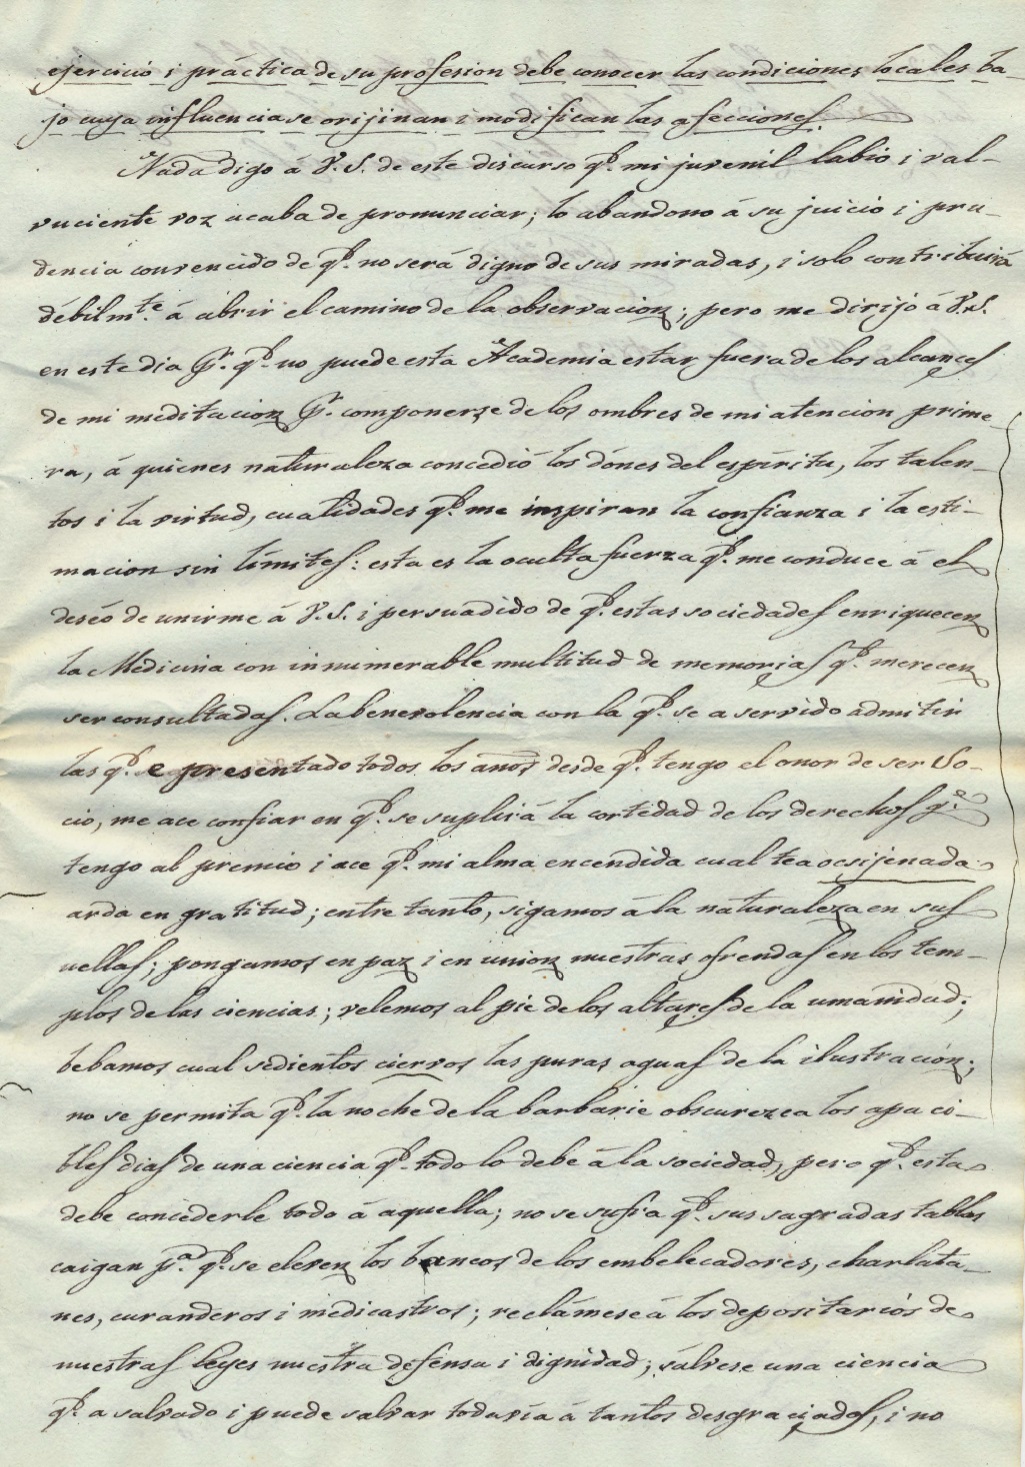 ejercicio i práctica de su profesion debe conocer las condiciones locales ba-
jo cuya influencia se orijinan i modifican las afecciones.
Nada digo á V.S. de este discurso q.e mi juvenil labio i val-
vuciente voz acaba de pronunciar; lo abandono á su juicio i pru-
dencia convencido de q.e no será digno de sus miradas, i solo contribuirá
débilm.te á abrir el camino de la observacion; pero me dirijo á V.S.
en este dia p.r q.e no puede esta Academia estar fuera de los alcances
de mi meditacion p.r componerse de los ombres de mi atencion prime-
ra, á quienes naturaleza concedió los dónes del espíritu, los talen-
tos i la virtud, cualidades q.e me inspiran la confianza i la esti-
macion sin límites: esta es la oculta fuerza q.e me conduce á el
deséo de unirme á V.S. i persuadido de q.e estas sociedades enriquecen
la Medicina con innumerable multitud de memorias q.e merecen
ser consultadas. La benevolencia con la q.e se a servido admitir
las q.e e presentado todos los años desde q.e tengo el onor de ser So-
cio, me ace confiar en q.e se suplirá la cortedad de los derechos q.e
tengo al premio i ace q.e mi alma encendida cual tea ocsijenada
arda en gratitud; entre tanto, sigamos á la naturaleza en sus
uellas; pongamos en paz i en union nuestras ofrendas en los tem-
plos de las ciencias; velemos al pie de los altares de la umanidad;
bebamos cual sedientos ciervos las puras aguas de la ilustración;
no se permita q.e la noche de la barbarie obscurezca los apaci-
bles dias de una ciencia q.e todo lo debe á la sociedad, pero q.e esta
debe concederle todo á aquella; no se sufra q.e sus sagradas tablas
caigan p.a q.e se eleven los bancos de los embelecadores, charlata-
nes, curanderos i medicastros; reclámese á los depositarios de
nuestras leyes nuestra defensa i dignidad; sálvese una ciencia
q.e a salvado i puede salvar todavía á tantos desgraciados, i no